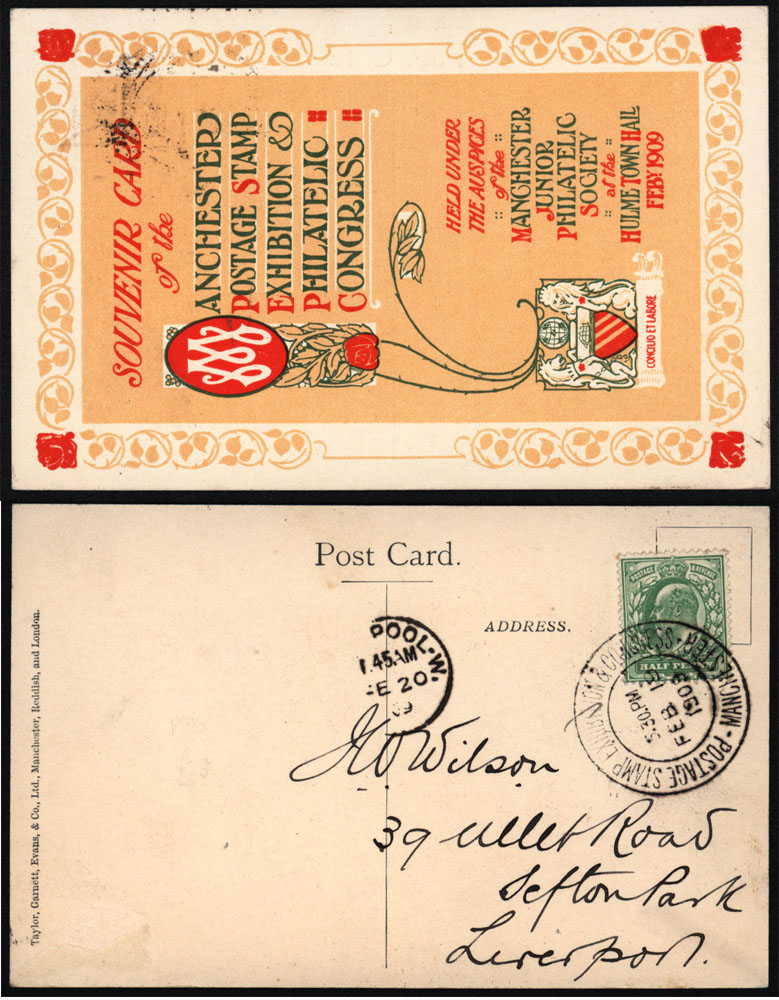 SOUVENIR CARD
of the
MANCHESTER
POSTAGE STAMP
EXHIBITION &
PHILATELIC
CONGRESS
HELD UNDER
THE AUSPICES
of the
MANCHESTER
JUNIOR
PHILATELIC
SOCIETY
at the
HULME TOWN HALL
FEBY 1909
CONCILIO ET LABORE
Post Card.
ADDRESS.
POSTAGE & REVENUE
HALF PE
MANCHESTER • POSTAGE STAMP EXHIBITION & CONGRESS •
5.30.PM
FEB 19
1909
POOL-W.
.45AM
FE 20
09
J.W. Wilson
39 Ullet Road
Sefton Park
Liverpool.
Taylor, Garnett, Evans, & Co., Ltd., Manchester, Reddish, and London.